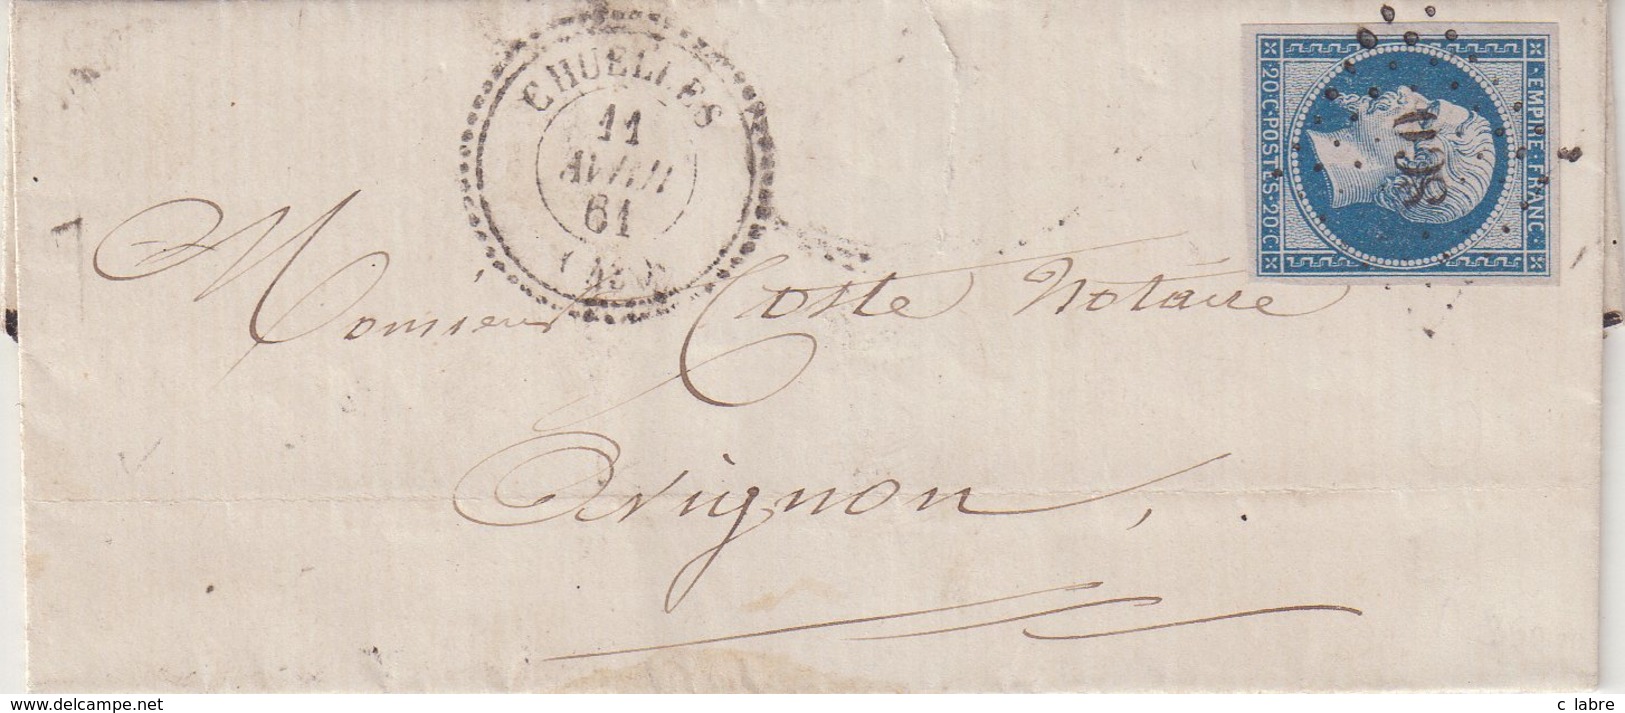 CHUELLES
11
AVRIL
61
EMPIRE · FRANC ·
20 · C · POSTES · 20 · C
Monsieur Coste Notaire
Avignon,
www.delcampe.net
c labre